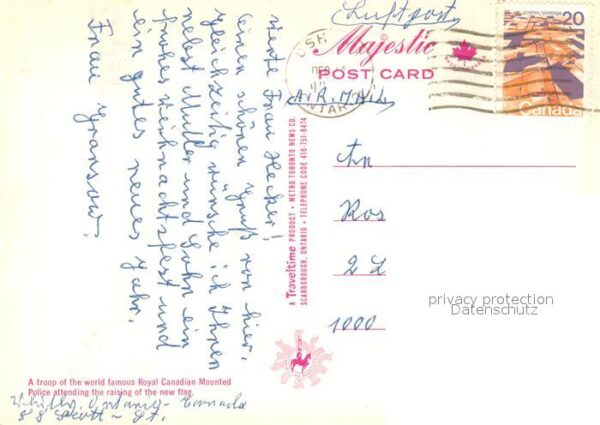 Luftpost
Majestic
POST CARD
AIR-MAIL
postes/postage
20
Canada
OSH
DEC
ONTARIO
Werte Frau Hecker!
Einen schönen Gruß von hier.
Gleichzeitig wünsche ich Ihnen
nebst Mutter und Sohn ein
frohes Weihnachtsfest und
ein gutes neues Jahr.
Frau Gransow.
A Traveltime PRODUCT • METRO TORONTO NEWS CO.
SCARBOROUGH, ONTARIO • TELEPHONE CODE 416-751-8474
An
Ros
1000
privacy protection
Datenschutz
A troop of the world famous Royal Canadian Mounted
Police attending the raising of the new flag.
Whitby, Ontario - Canada
Scott - St.